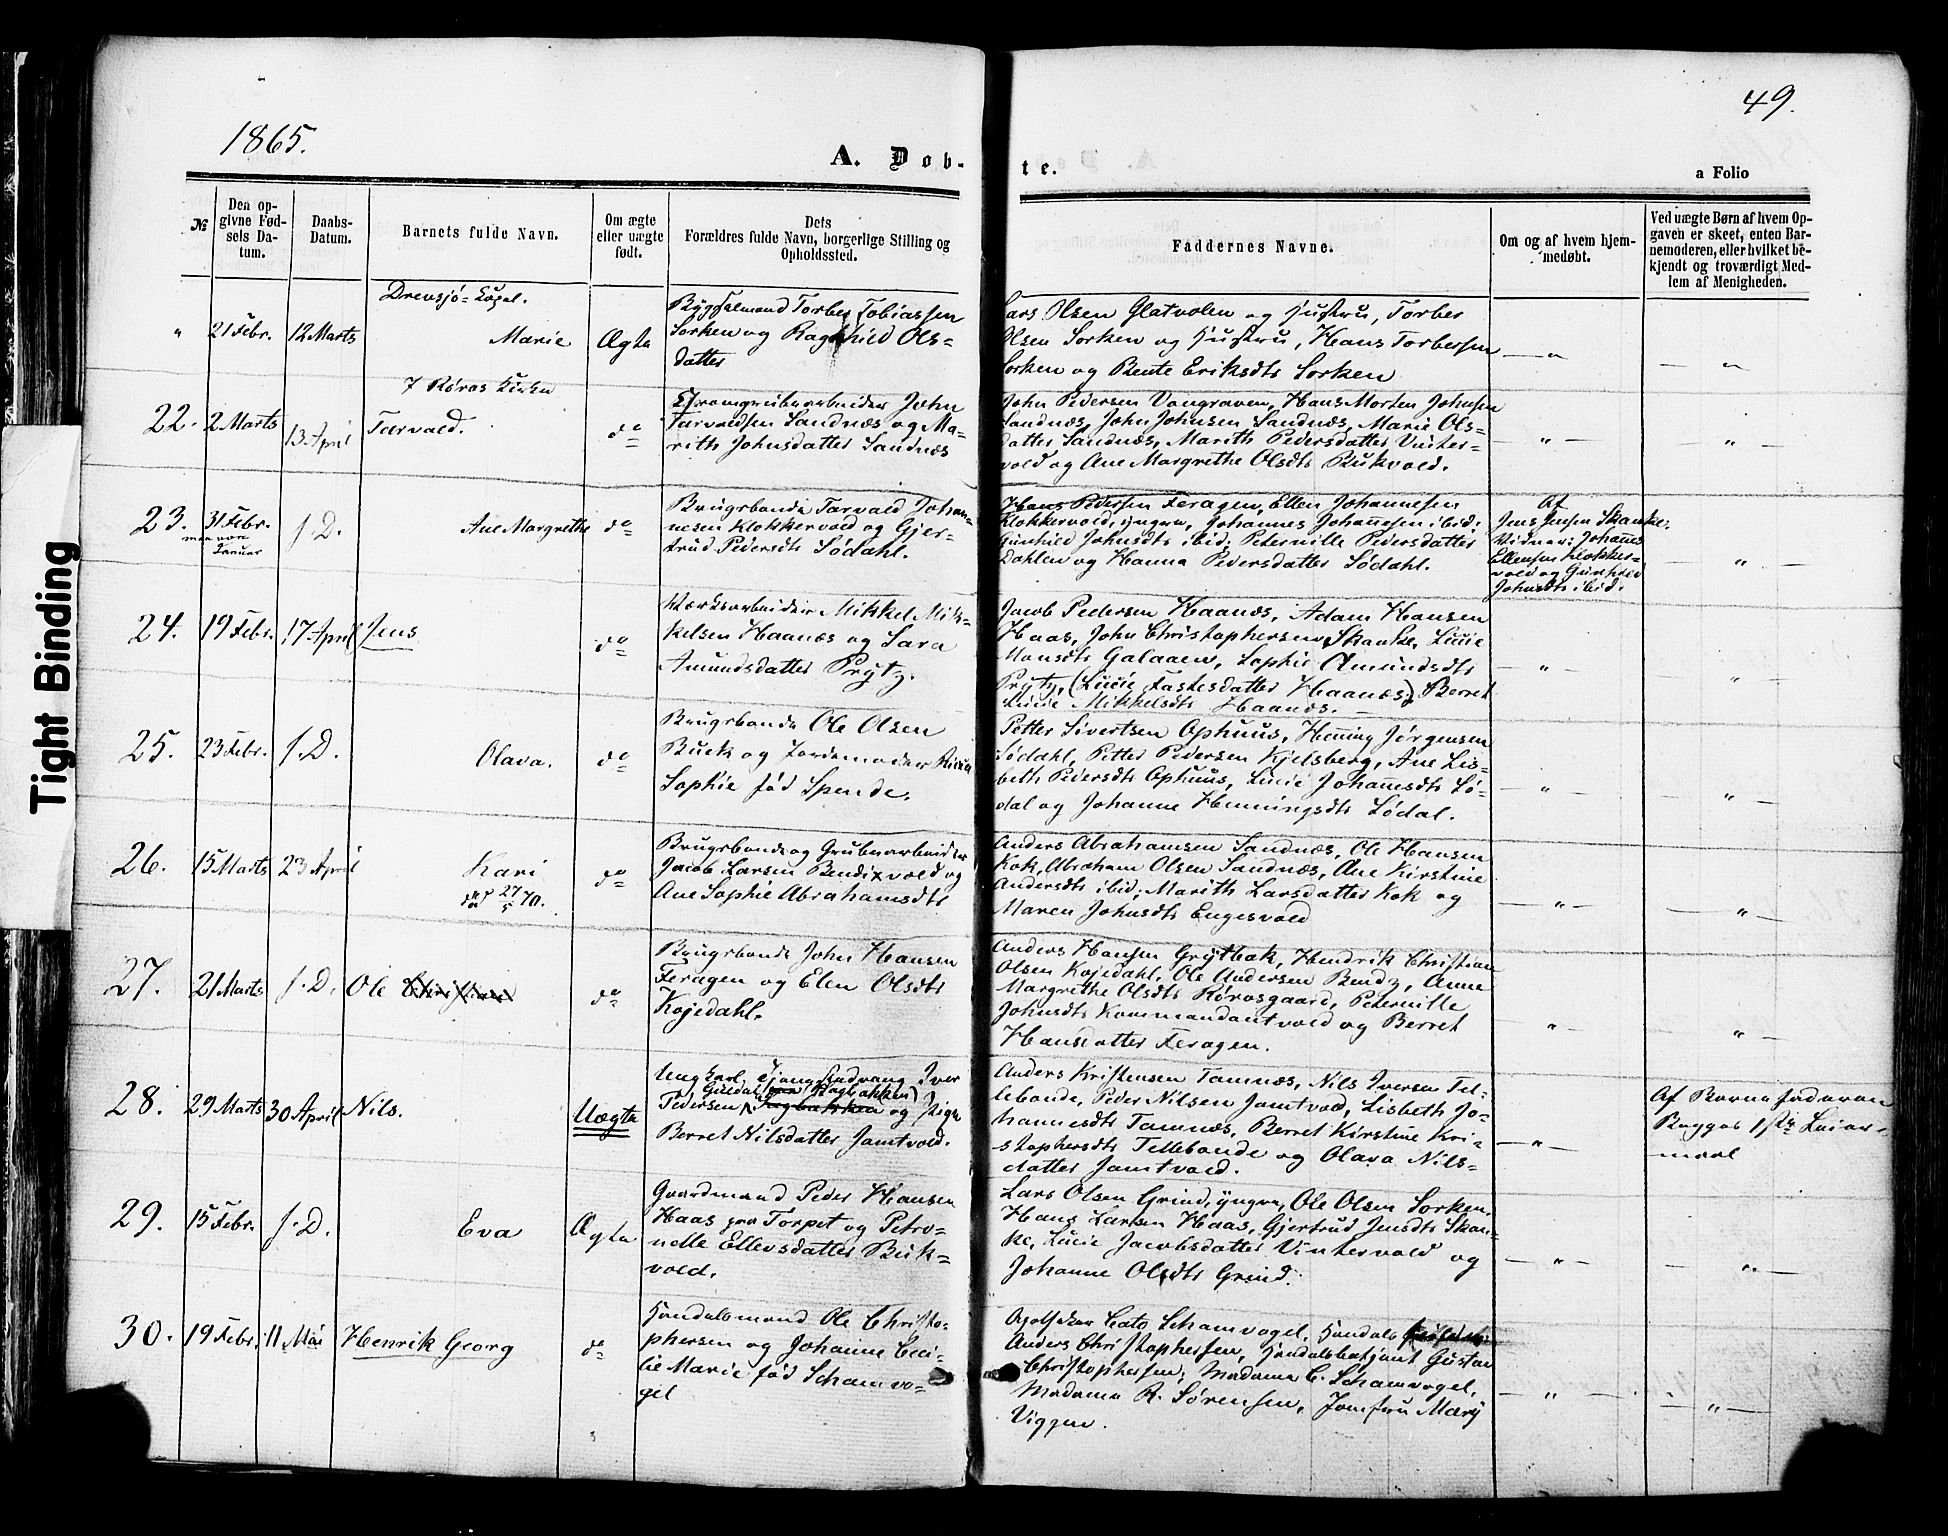 Tight Binding
1865.
49.
A. Døb-
te.
a Folio
№
Den op-
givne Fød-
sels Da-
tum.
Daabs-
Datum.
Barnets fulde Navn.
Om ægte
eller uægte
født.
Dets
Forældres fulde Navn, borgerlige Stilling og
Opholdssted.
Faddernes Navne.
Om og af hvem hjem-
medøbt.
Ved uægte Børn af hvem Op-
gaven er skeet, enten Bar-
nemoderen, eller hvilket be-
kjendt og troværdigt Med-
lem af Menigheden.
"
21 Febr.
12 Marts
Marie
Ægte
Torber Tobiassen
Sorken og Ragnhild Ols-
datter
Lars Olsen Glatvolen og Hustru, Torber
Olsen Sorken og Hustru, Hans Torbersen
Sorken og Bente Eriksdtr Sorken
— " —
— " —
Røros Kirke
22.
2 Marts
13 April
Tarvald.
do
John
Tarvaldsen Sandnæs og Ma-
rith Johnsdatter Sandnæs
John Pedersen Vongraven, Hans Morten Johnsen
Sandnæs, John Johnsen Sandnæs, Marie Ols-
datter Sandnæs, Marith Pedersdatter Vinter-
vold og Ane Margrethe Olsdtr Bukvold.
— " —
— " —
23.
31 Febr.
Januar
s. D.
Ane Margrethe
do
Brugsbonde Tarvald Johan-
nesen Klokkervold og Gjer-
trud Pedersdtr Sødahl.
Hans Pedersen Feragen, Ellen Johannesen
Klokkervold, yngre, Johannes Johannesen ibid;
Gunhild Johnsdtr ibid; Peternille Pedersdatter
Dahlen og Hanna Pedersdatter Sødahl.
Af
Jens Jensen Skanke.
Vidner: Johannes
Ellensen Klokker-
vold og Gunhild
Johnsdtr ibid.
— " —
24.
19 Febr.
17 April
Jens
do
Værksarbeider Mikkel Mik-
kelsen Haanæs og Sara
Amundsdatter Prytz.
Jacob Pedersen Haanæs, Adam Hansen
Haas, John Christophersen Skanke, Lucie
Monsdtr Galaaen, Sophie Amundsdtr
Prytz, (Lucie Fastesdatter Haanæs), Berret
Lucie Mikkelsdtr Haanæs.
— " —
— " —
25.
23 Febr.
s. D.
Olava.
do
Brugsbonde Ole Olsen
Buck og Jordemoder
Sophie fød Spende.
Petter Sivertsen Ophuus, Henning Jørgensen
Sødahl, Petter Pedersen Kjelsberg, Ane Lis-
beth Pedersdtr Ophuus, Lucie Johannsdtr Sø-
dal og Johanne Henningsdtr Sødal.
— " —
— " —
26.
15 Marts
23 April
Kari
død 27/5 70.
do
Brugsbonde og Grubearbeider
Jacob Larsen Bendixvold og
Ane Sophie Abrahamsdtr
Anders Abrahamsen Sandnæs, Ole Hansen
Kok, Abraham Olsen Sandnæs, Ane Kirstine
Andersdtr ibid; Marith Larsdatter Kok og
Maren Johnsdtr Engesvold
— " —
— " —
27.
21 Marts
s. D.
Ole Christian
do
Brugsbonde John Hansen
Feragen og Elen Olsdtr
Kojedahl.
Anders Hansen Grytbak, Hendrik Christian
Olsen Kojedahl, Ole Andersen Bendz, Anne
Margrethe Olsdtr Rørosgaard, Peternille
Johnsdtr Kommandantvold og Berret
Hansdatter Feragen.
— " —
— " —
28.
29 Marts
30 April
Nils.
Uægte
Ungkarl Iver
Pedersen og Pige
Berret Nilsdatter Jamtvold.
Anders Kristensen Tamnæs, Nils Iversen Til-
lebonde, Peder Nilsen Jamtvold, Lisbeth Jo-
hannesdtr Tamnæs, Berret Kirstine Kri-
stophersdtr Tillebonde og Olava Nils-
datter Jamtvold.
— " —
Af Barnefaderen
29.
15 Febr.
s. D.
Eva
Ægte
Gaardmand Peder Hansen
Haas paa Torpet og Petro-
nelle Ellevsdatter Buk-
vold.
Lars Olsen Grind, yngre, Ole Olsen Sorken,
Hans Larsen Haas, Gjertrud Jensdtr Skan-
ke, Lucie Jacobsdatter Vintervold og
Johanne Olsdtr Grind.
— " —
— " —
30.
19 Febr.
11 Mai
Henrik Georg
do
Handelsmand Ole Christo-
phersen og Johanne Ceci-
lie Marie fød Schamvo-
gel
Cato Schamvogel, Handels
Anders Christophersen, Handelsbetjent Gustav
Christophersen, Madame C. Schamvogel,
Madame R. Sørensen, Jomfru Mary
Viggen.
— " —
— " —